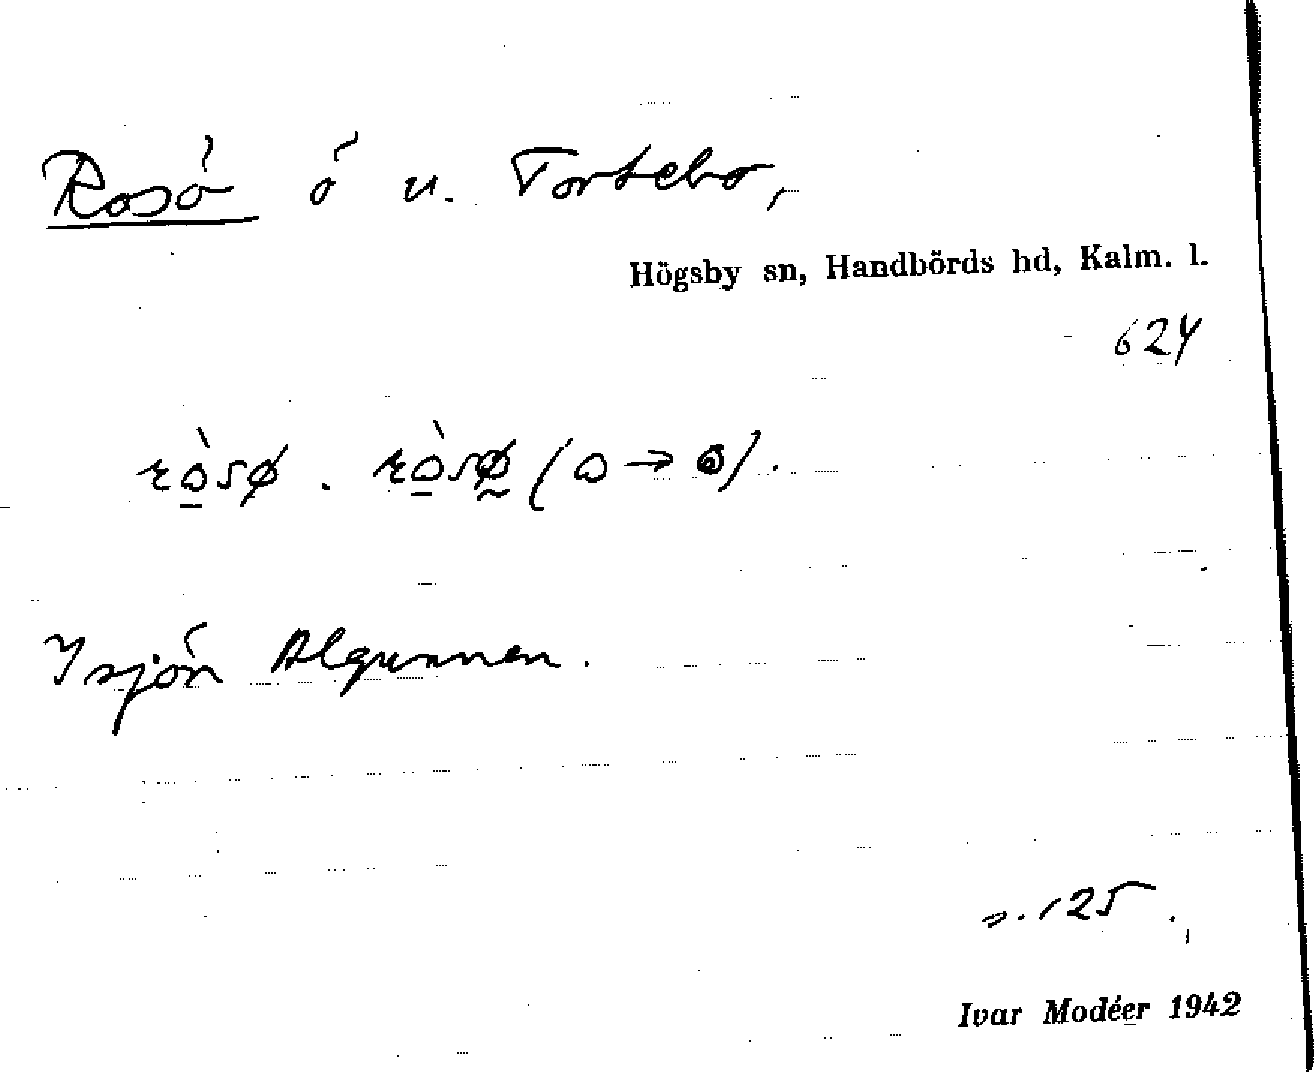 Rosö ö u. Tortebo,
Högsby sn, Handbörds hd, Kalm. l.
624
I sjön Algunnen.
s. 125.
Ivar Modéer 1942